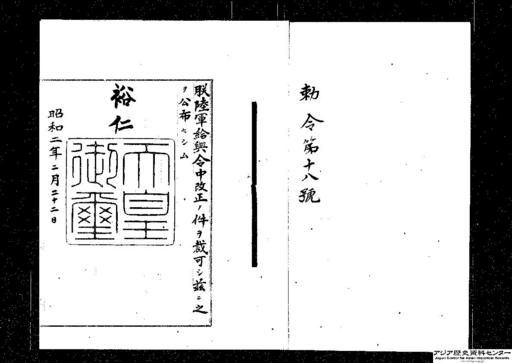 勅令第十八號
朕陸軍給與令中改正ノ件ヲ裁可シ茲ニ之
ヲ公布セシム
裕仁
天皇
御璽
昭和二年二月二十二日
アジア歴史資料センター
Japan Center for Asian Historical Records